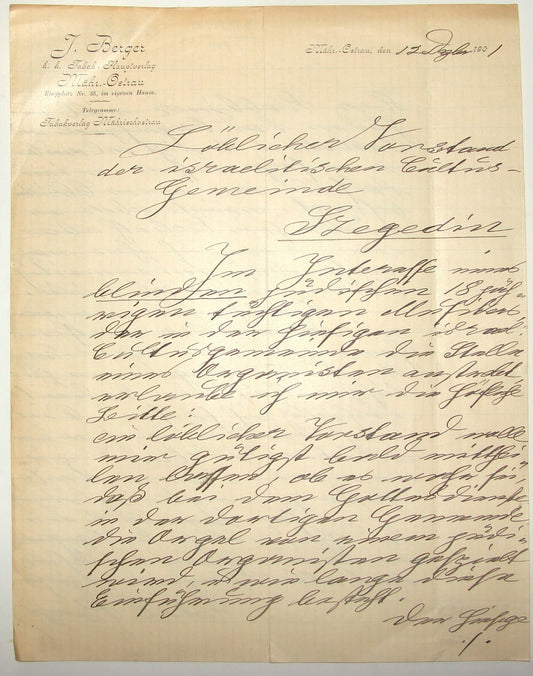 J. Berger
k. k. Tabak-Hauptverlag
Mähr.-Ostrau
Ringplatz Nr. 35, im eigenen Hause.
Telegramme:
Tabakverlag Mährischostrau
Mähr.-Ostrau, den 12 Dezbr 1901
Löblicher Vorstand
der israelitischen Cultus-
Gemeinde
Szegedin
Im Interesse eines
blinden jüdischen 18 jäh-
rigen tüchtigen Musikers
der in der hiesigen israel.
Cultusgemeinde die Stelle
eines Organisten anstrebt,
erlaube ich mir die höfliche
Bitte:
ein löblicher Vorstand wolle
mir gütigst bald mitthei-
len lassen, ob es wahr sei,
daß bei dem Gottesdienste
in der dortigen Gemeinde
die Orgel von einem jüdi-
schen Organisten gespielt
wird, u wie lange diese
Einführung besteht.
Der hiesige
./.